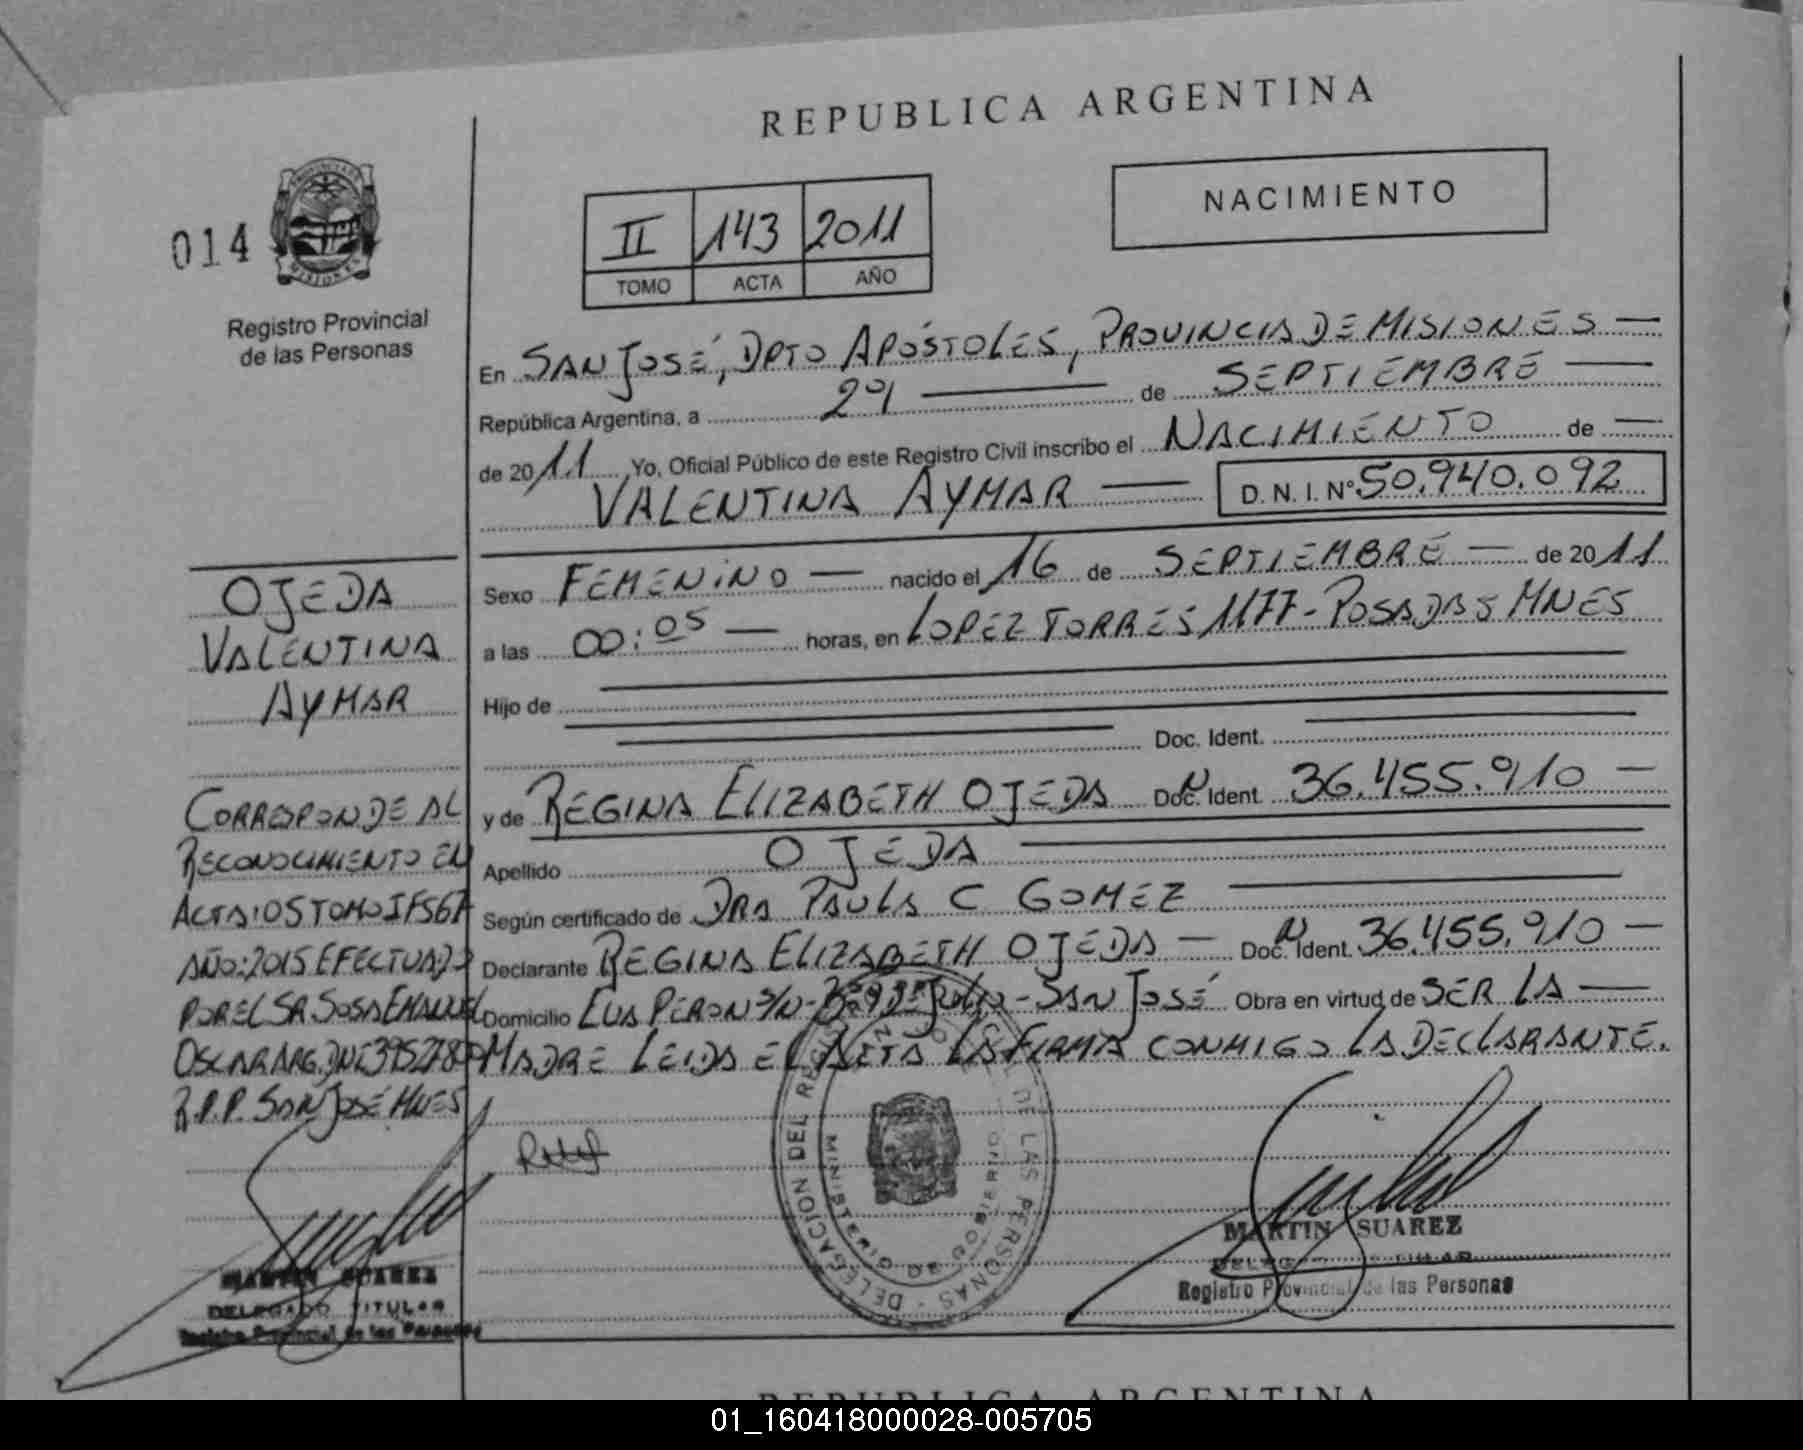 REPUBLICA ARGENTINA
014
PROVINCIA DE
MISIONES
Registro Provincial
de las Personas
II 143 2011
TOMO ACTA AÑO
NACIMIENTO
En SAN JOSÉ, DPTO APÓSTOLES, PROVINCIA DE MISIONES —
República Argentina, a 29 — de SEPTIEMBRE —
de 2011 Yo, Oficial Público de este Registro Civil inscribo el NACIMIENTO de —
VALENTINA AYMAR — D. N. I. Nº 50.940.092
OJEDA
VALENTINA
AYMAR
Sexo FEMENINO — nacido el 16 de SEPTIEMBRE — de 2011
a las 00:05 — horas, en LOPEZ TORRES 1177 - POSADAS MNES
Hijo de
Doc. Ident.
y de REGINA ELIZABETH OJEDA Doc. Ident. N 36.455.910 —
Apellido OJEDA
Según certificado de DRA PAULA C GOMEZ
Declarante REGINA ELIZABETH OJEDA — Doc. Ident. N 36.455.910 —
Domicilio EVA PERON S/N - Bº 9 DE Julio - SAN JOSÉ Obra en virtud de SER LA —
MADRE LEIDA EL ACTA LA FIRMA CONMIGO LA DECLARANTE.
CORRESPONDE AL
RECONOCIMIENTO EN
ACTA:05 TOMO I Fº
AÑO:2015 EFECTUADO
POR EL SR SOSA EMANUEL
OSCAR ARG. DNI
R.P.P. SAN JOSÉ MNES
DELEGACION DEL REGISTRO DE LAS PERSONAS
MINISTERIO DE GOBIERNO
MARTIN SUAREZ
DELEGADO TITULAR
Registro Provincial de las Personas
MARTIN SUAREZ
DELEGADO TITULAR
Registro Provincial de las Personas
REPUBLICA ARGENTINA
01_160418000028-005705